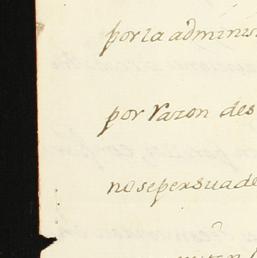 por la adminis
por razon des
no se persuade